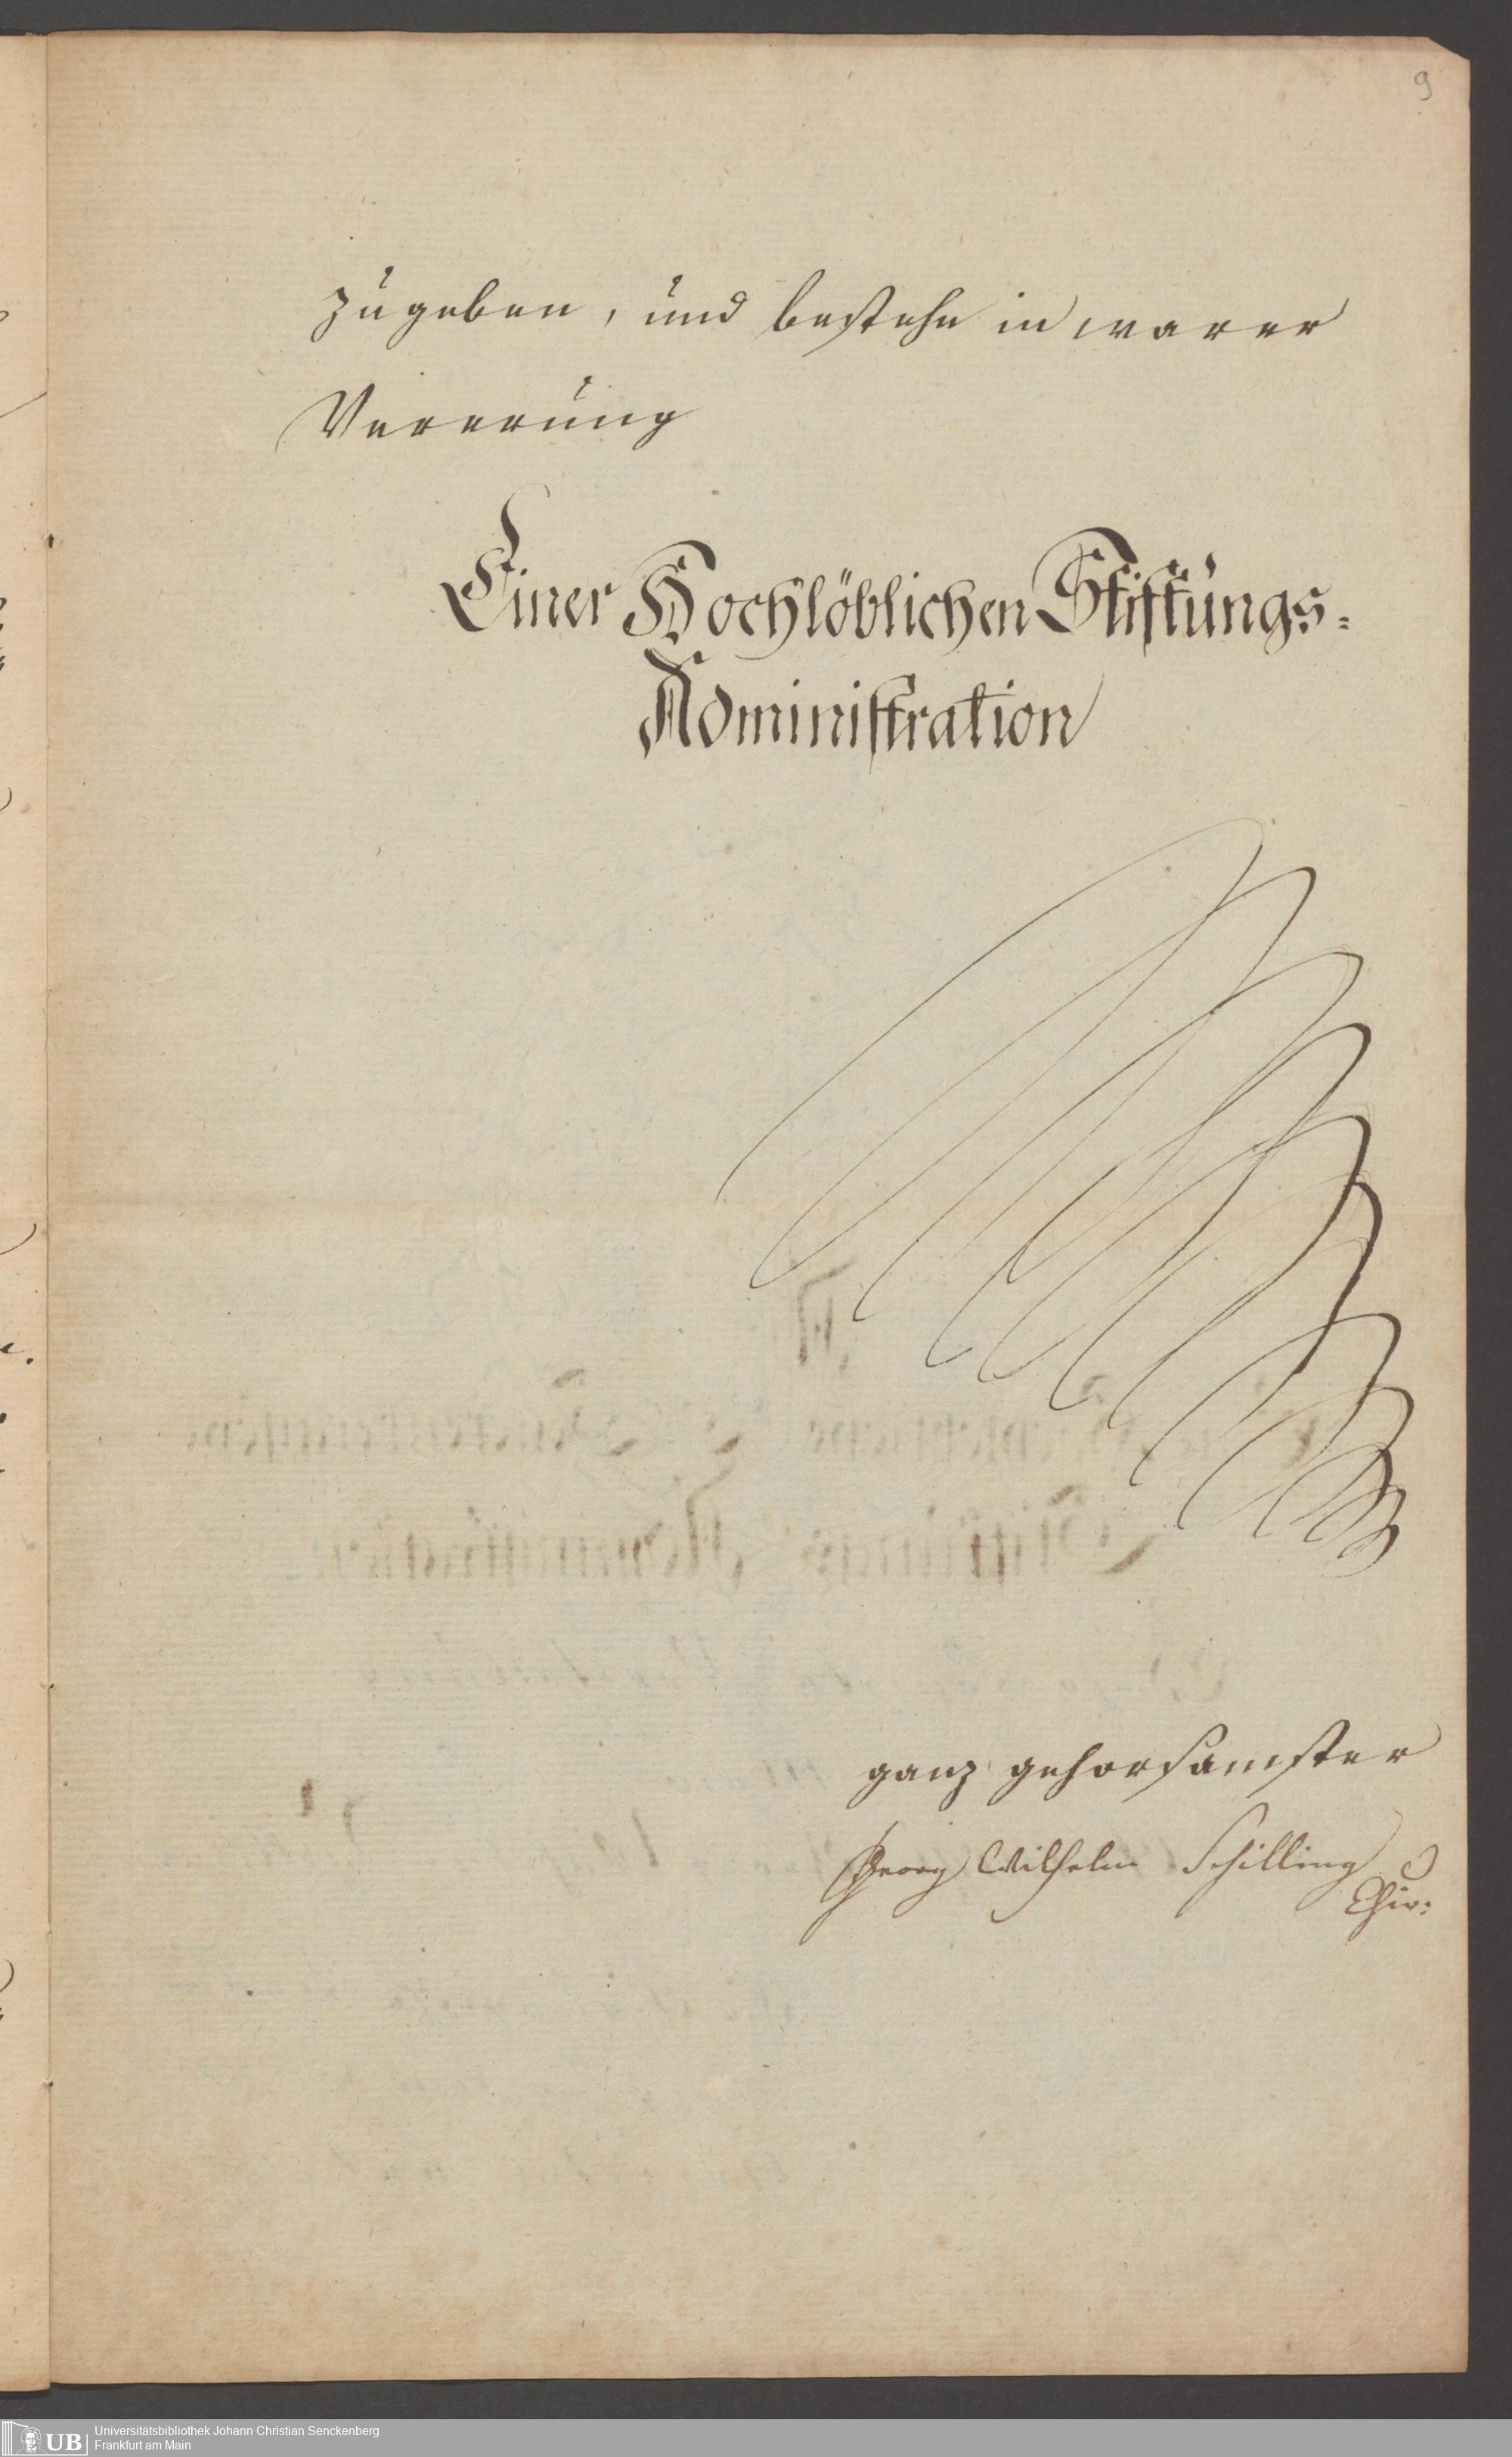 9
zugeben, und bestehe in warer
Vererung
Einer Hochlöblichen Stiftungs=
Administration
ganz gehorsamster
Georg Wilhelm Schilling
Chir:
UB
Universitätsbibliothek Johann Christian Senckenberg
Frankfurt am Main